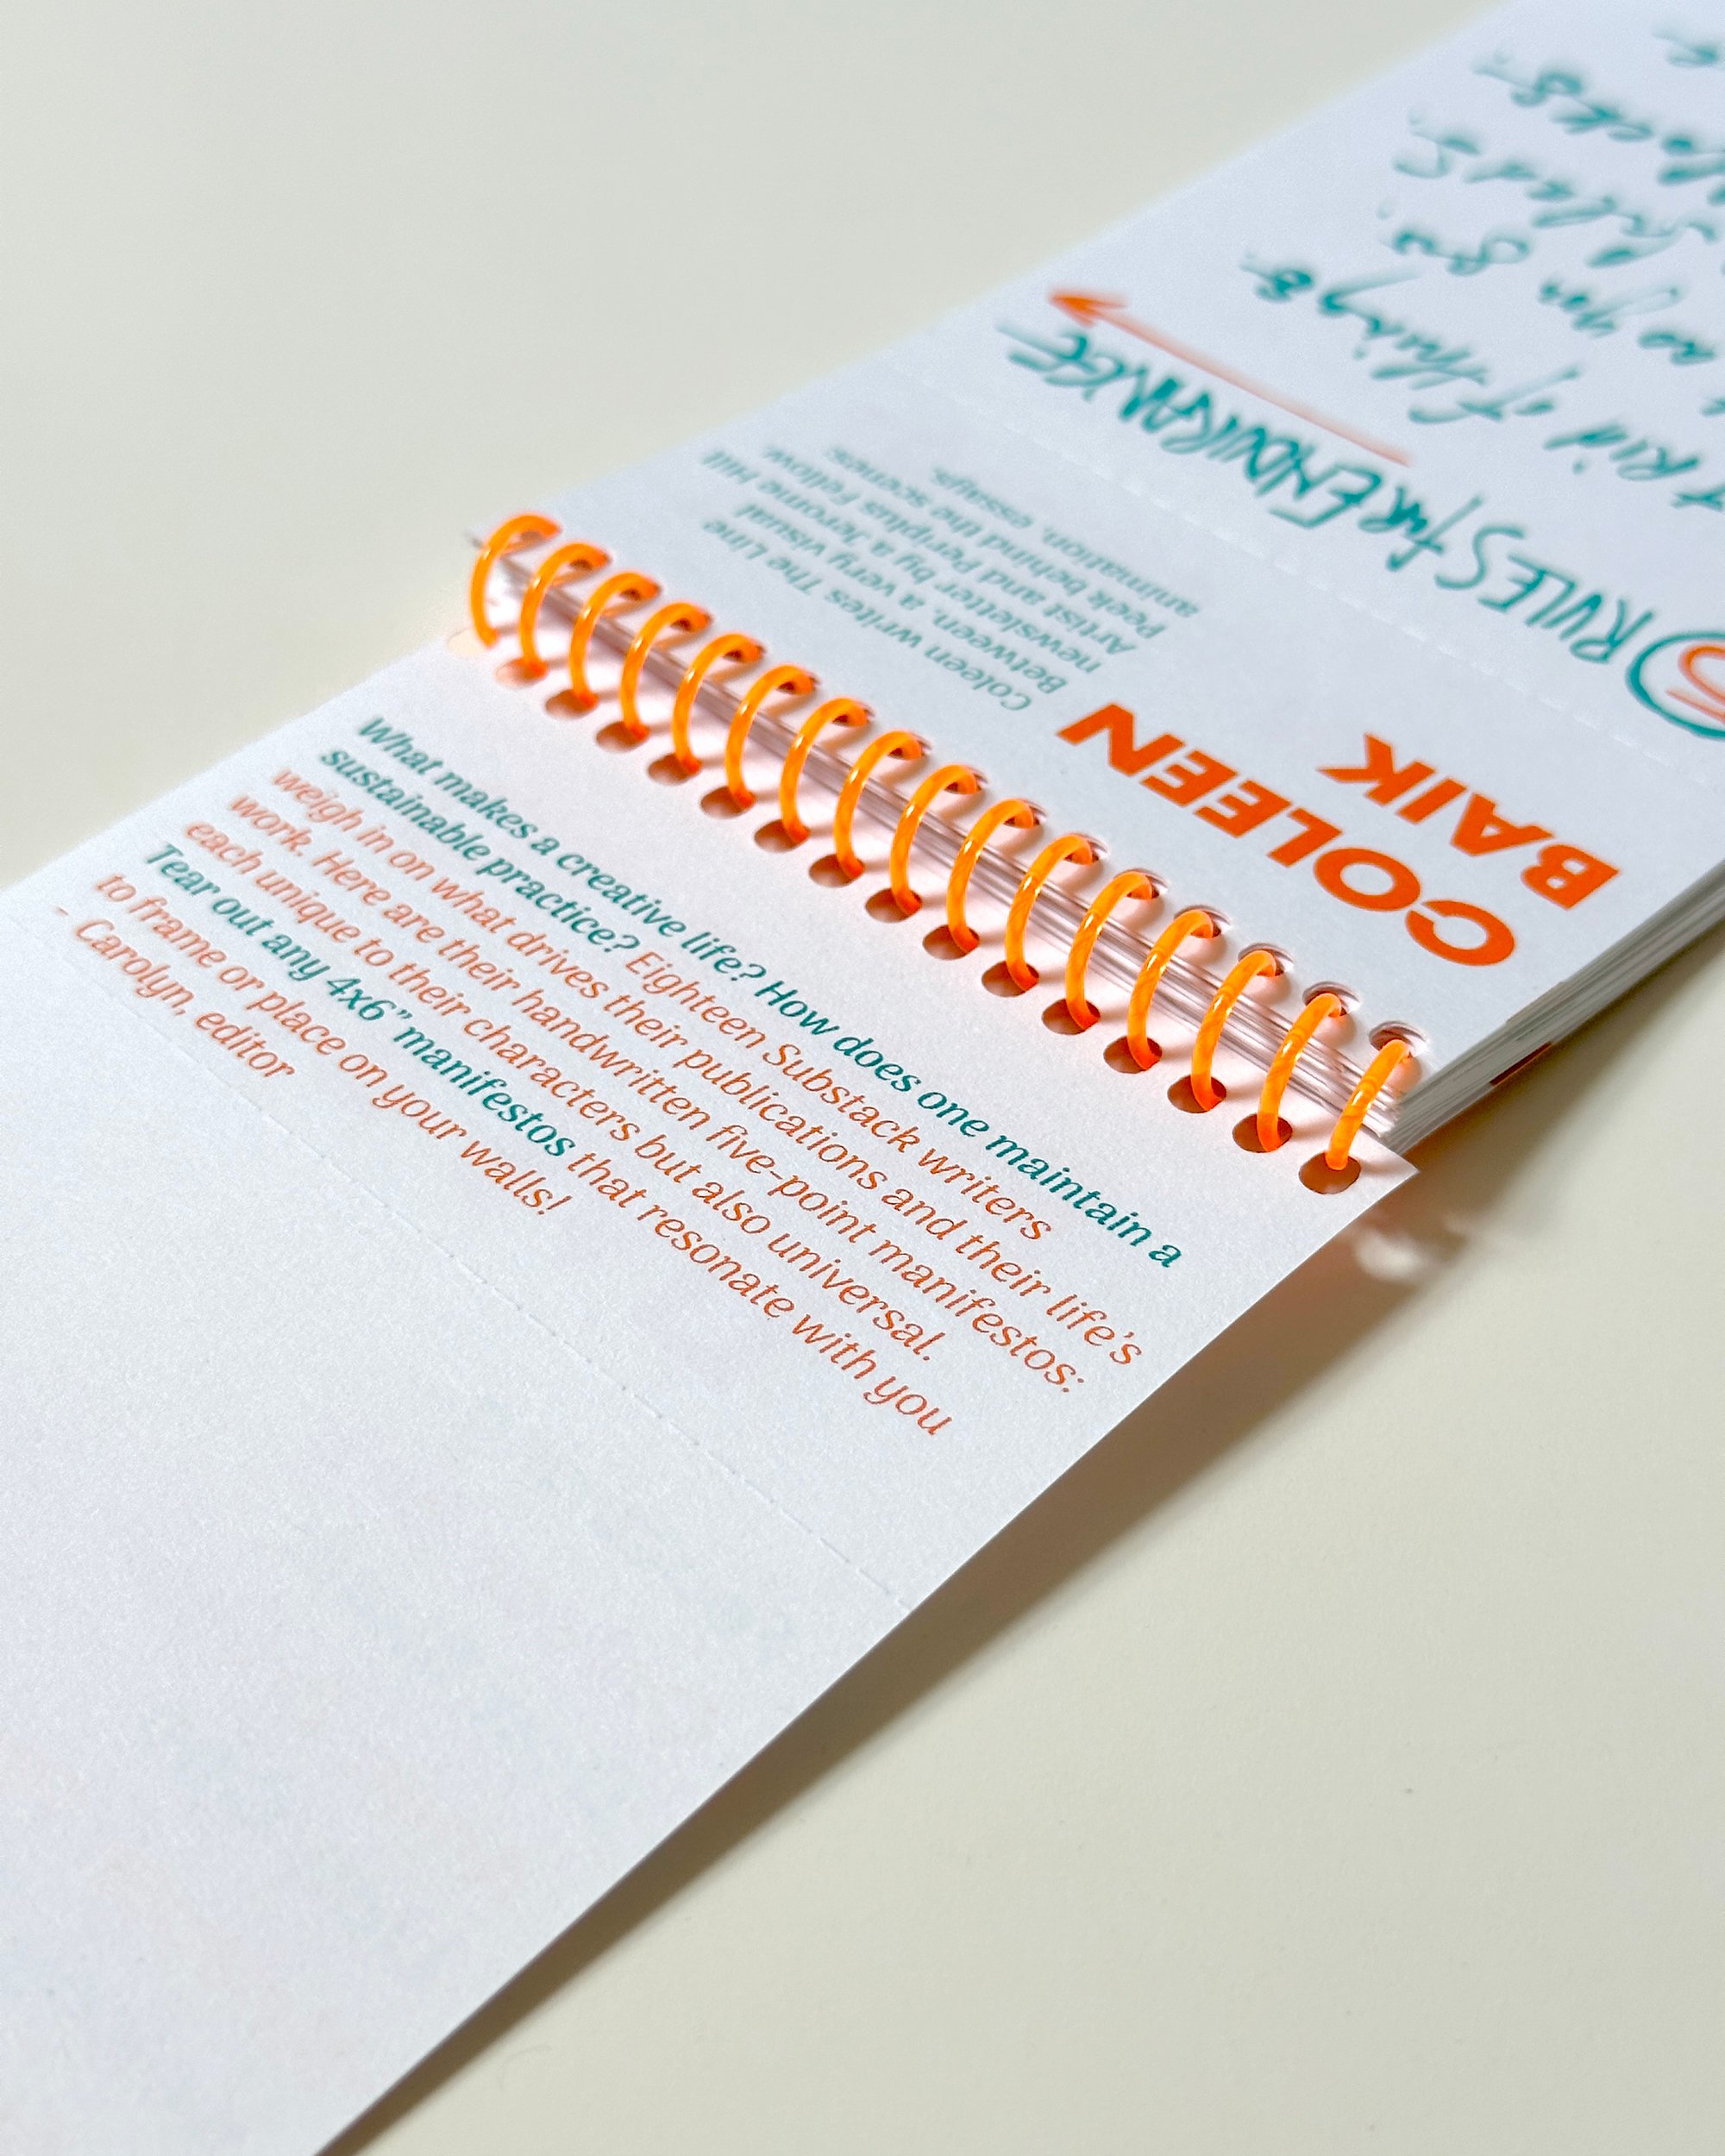 What makes a creative life? How does one maintain a
sustainable practice? Eighteen Substack writers
weigh in on what drives their publications and their life's
work. Here are their handwritten five-point manifestos:
each unique to their characters but also universal.
Tear out any 4x6" manifestos that resonate with you
to frame or place on your walls!
- Carolyn, editor
COLEEN
BAIK
Coleen writes The Line
Between, a very visual
newsletter by a Jerome Hill
Artist and Periplus Fellow.
Peek behind the scenes:
animation, essays.
5 RULES for ENDURANCE
rid of things.
you go.